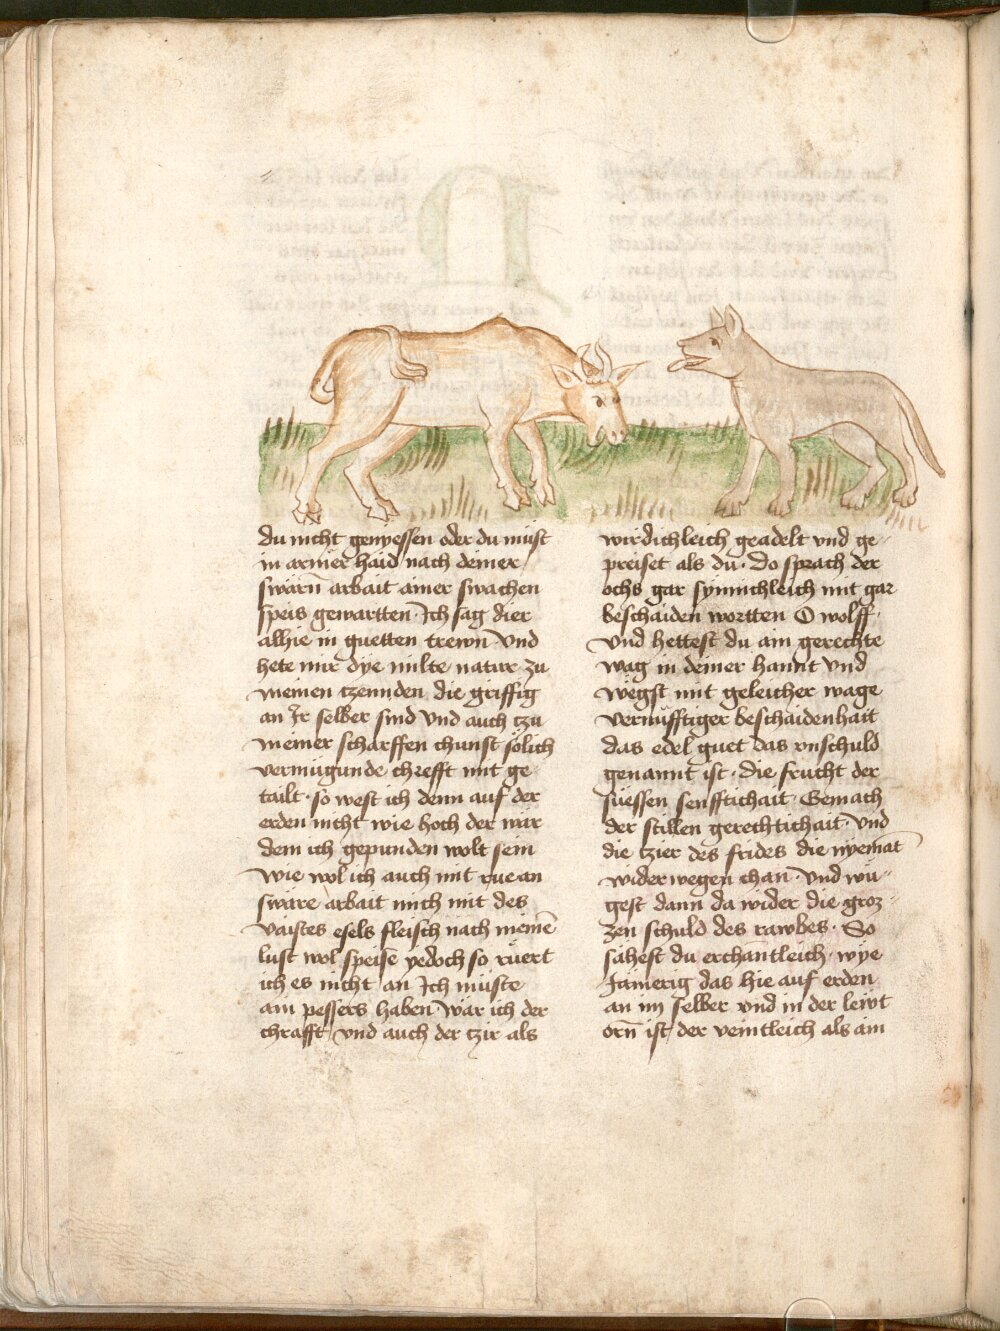 du nicht genyessen oder du müst
in armer haid nach deiner
swärn̄ arbait ainer swachen
speis gewartten · Ich sag dier
alhie in guetten trewn̄ · Vnd
hete mir dye milte natur zu
meinen tzennden die griffig
an Ir selber sind vnd auch tzu
meiner scharffen chunst sölich
vermügunde chrefft mit ge
tailt · so west ich denn auf der
erden nicht wie hoch der wär
dem ich gepunden wolt sein
wie wol ich auch mit rue an
swäre arbait mich mit des
vaistes esels fleisch nach meinē
lust wol speise yedoch so rüert
ich es nicht an Ich müste
ain pessers haben wär ich der
chrafft vnd auch der tzir als
wirdichleich geadelt vnd ge
preiset als du · Do sprach der
ochs gar synnichleich mit gar
beschaiden wortten O wolff
Vnd hettest du ain gerechte
wag in deiner hannt vnd
wegst mit geleicher wage
vernüfftiger beschaidenhait
das edel guet das vnschuld
genannt ist · die frucht der
süessen senfftichait · Gemach
der stillen gerechtichait · Vnd
die tzier des frides die nyemāt
wider wegen chan · Vnd wü
gest dann da wider die groz
zen schuld des rawbes · So
sähest du erchantleich · wye
Jämerig das hie auf erden
an im selber vnd in der lewt
orn̄ ist der veintleich als ain